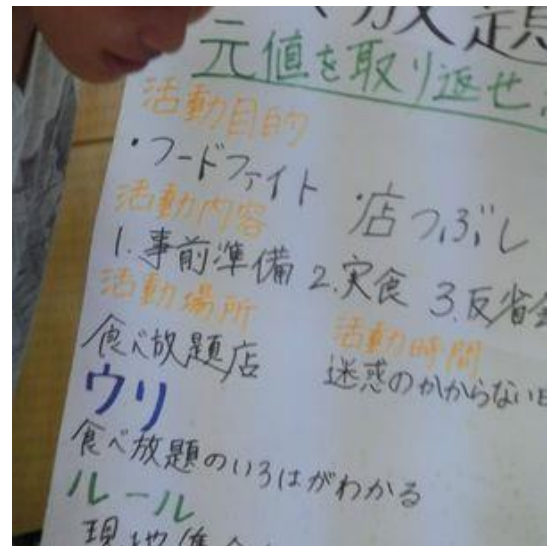 放題
元値を取り返せ
活動目的
・フードファイト ・店つぶし
活動内容
1.事前準備 2.実食 3.反省会
活動場所 活動時間
食べ放題店 迷惑のかからない日
ウリ
食べ放題のいろはがわかる
ルール
現地集合